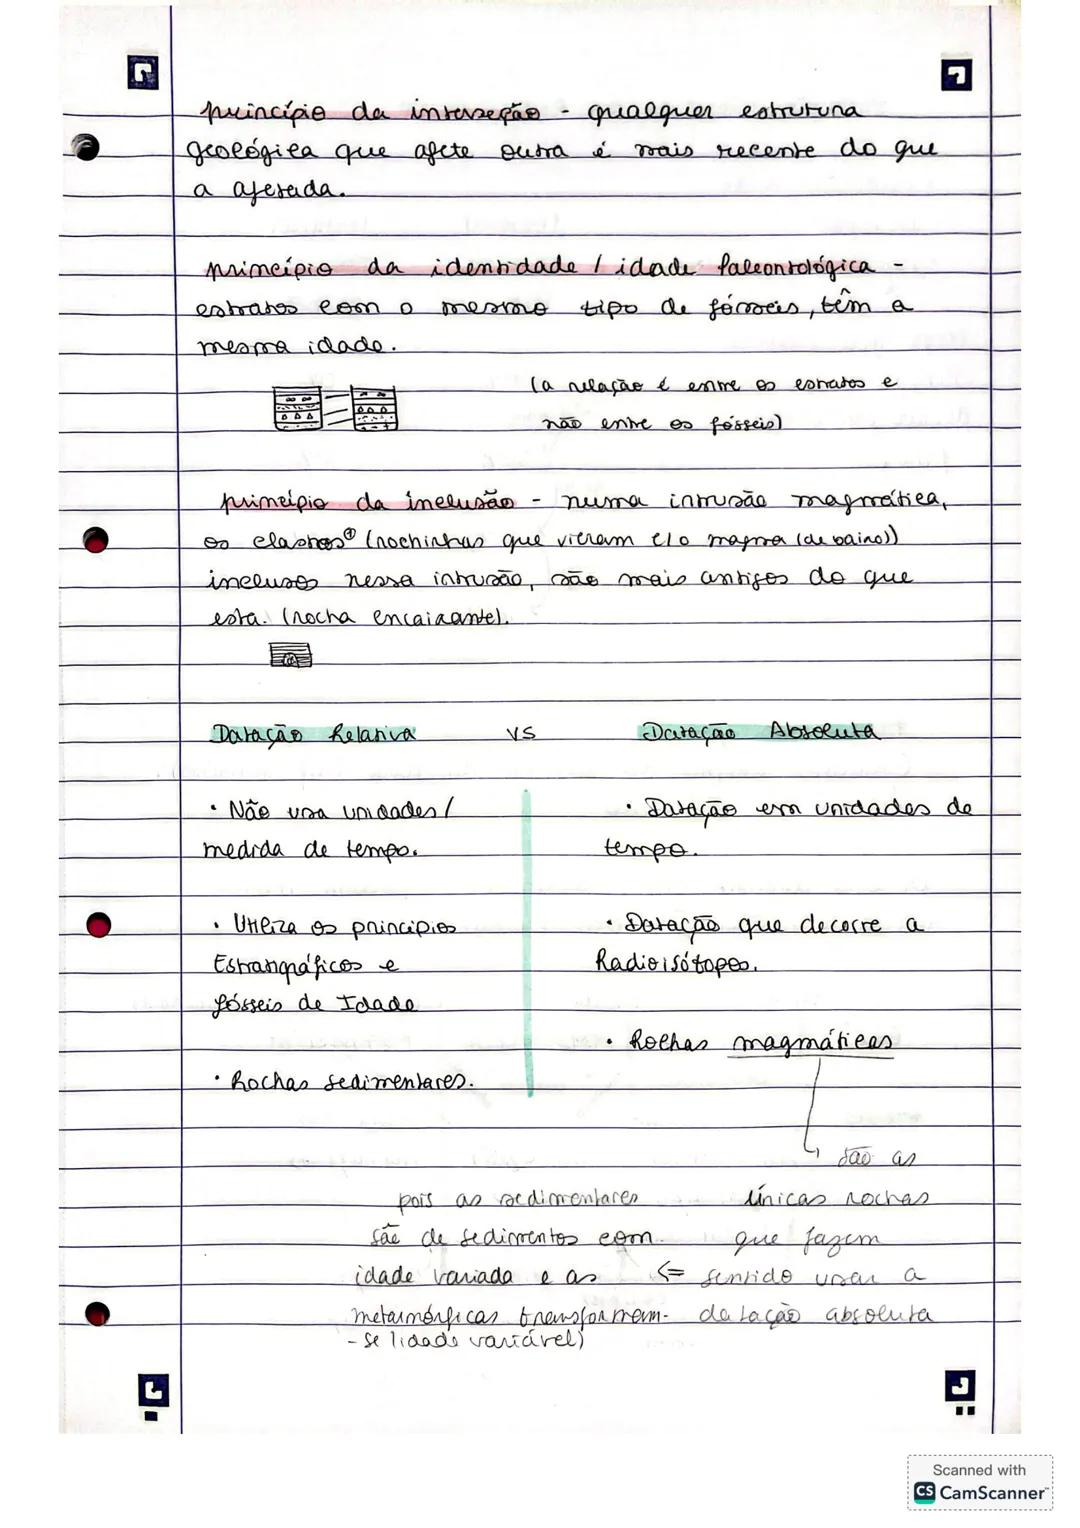 princípio da interseção - qualquer estrutura
geológica que afete outra é mais recente do que
a afetada.
princípio da identidade / idade Paleontológica -
estratos com o mesmo tipo de fósseis, têm a
mesma idade.
(a relação é entre os estratos e
não entre os fósseis)
princípio da inclusão - numa intrusão magmática,
os clastos (rochinhas que vieram c/o magma (de baixo))
inclusos nessa intrusão, são mais antigos do que
esta. (rocha encaixante).
Datação Relativa vs Datação Absoluta
· Não usa unidades /
medida de tempo.
· Datação em unidades de
tempo.
· Utiliza os princípios
Estratigráficos e
fósseis de Idade
· Datação que decorre a
Radioisótopos.
· Rochas sedimentares.
· Rochas magmáticas
são as
únicas rochas
que fazem
<= sentido usar a
datação absoluta
pois as sedimentares
são de sedimentos com
idade variada e as
metamórficas transformam-
-se (idade variável)
Scanned with
CS CamScanner